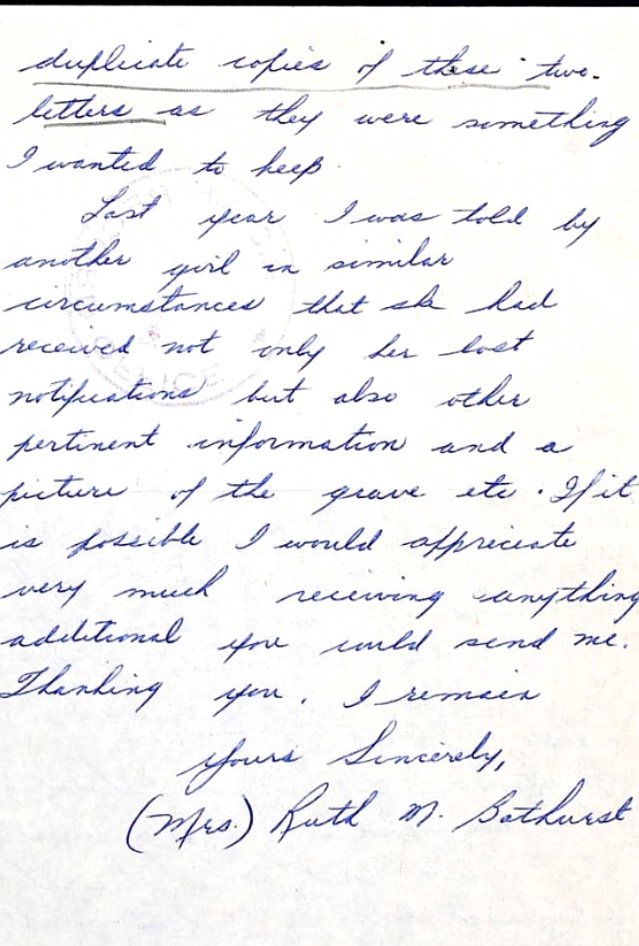 duplicate copies of these two
letters as they were something
I wanted to keep.
Last year I was told by
another girl in similar
circumstances that she had
received not only her lost
notifications but also other
pertinent information and a
picture of the grave etc. If it
is possible I would appreciate
very much receiving anything
additional you could send me.
Thanking you, I remain
Yours Sincerely,
(Mrs.) Ruth M. Bathurst